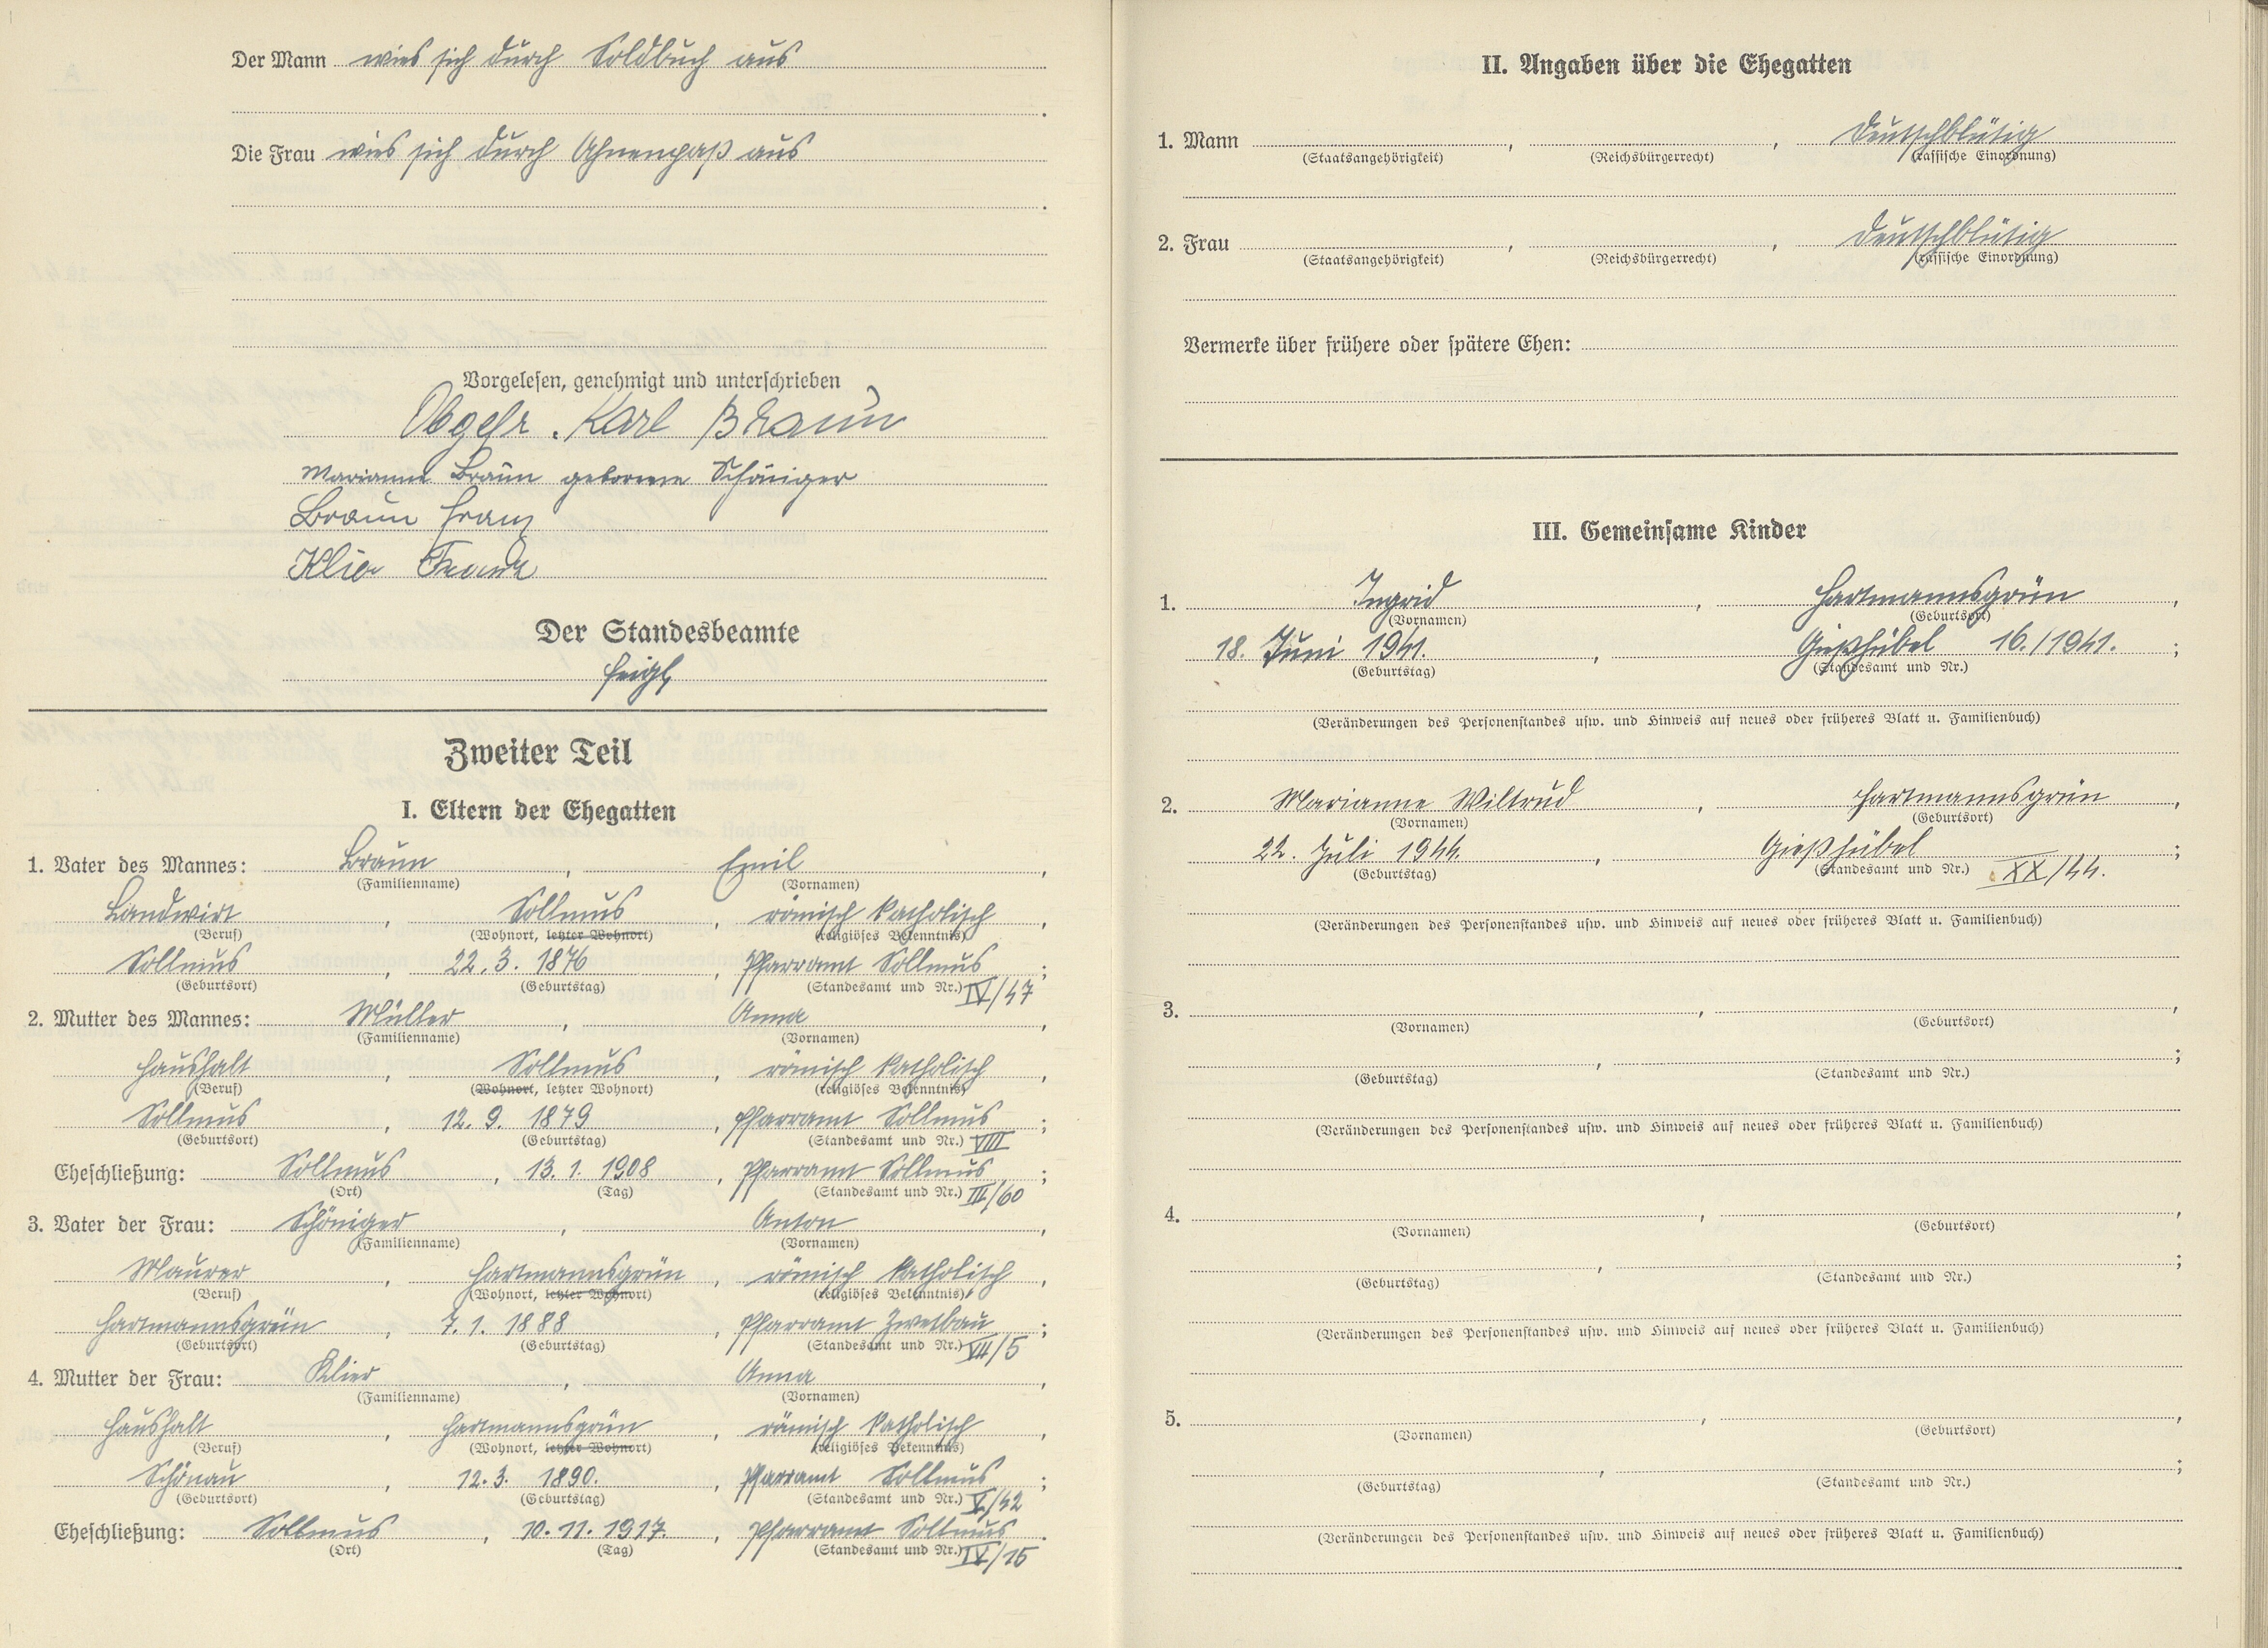 Der Mann wies sich durch Soldbuch aus
.
Die Frau wies sich durch Ahnenpaß aus
.
Vorgelesen, genehmigt und unterschrieben
Obgefr. Karl Braun
Marianne Braun geborene Schöniger
Braun Franz
Klier Frank
Der Standesbeamte
Feigl
Zweiter Teil
I. Eltern der Ehegatten
1. Vater des Mannes: Braun, Emil,
(Familienname) (Vornamen)
Landwirt, Sollmus, römisch katholisch,
(Beruf) (Wohnort, letzter Wohnort) (religiöses Bekenntnis)
Sollmus, 22.3. 1876, Pfarramt Sollmus;
(Geburtsort) (Geburtstag) (Standesamt und Nr.) IV/47
2. Mutter des Mannes: Müller, Anna,
(Familienname) (Vornamen)
Haushalt, Sollmus, römisch katholisch,
(Beruf) (Wohnort, letzter Wohnort) (religiöses Bekenntnis)
Sollmus, 12.9. 1879, Pfarramt Sollmus;
(Geburtsort) (Geburtstag) (Standesamt und Nr.) VIII
Eheschließung: Sollmus, 13.1. 1908, Pfarramt Sollmus;
(Ort) (Tag) (Standesamt und Nr.) III/60
3. Vater der Frau: Schöniger, Anton,
(Familienname) (Vornamen)
Maurer, Hartmannsgrün, römisch katholisch,
(Beruf) (Wohnort, letzter Wohnort) (religiöses Bekenntnis)
Hartmannsgrün, 7.1. 1888, Pfarramt Zwetbau;
(Geburtsort) (Geburtstag) (Standesamt und Nr.) VII/5
4. Mutter der Frau: Klier, Anna,
(Familienname) (Vornamen)
Haushalt, Hartmannsgrün, römisch katholisch,
(Beruf) (Wohnort, letzter Wohnort) (religiöses Bekenntnis)
Schönau, 12.3. 1890., Pfarramt Sollmus;
(Geburtsort) (Geburtstag) (Standesamt und Nr.) V/42
Eheschließung: Sollmus, 10.11. 1917., Pfarramt Sollmus.
(Ort) (Tag) (Standesamt und Nr.) IV/15
II. Angaben über die Ehegatten
1. Mann , , deutschblütig
(Staatsangehörigkeit) (Reichsbürgerrecht) (rassische Einordnung)
2. Frau , , deutschblütig
(Staatsangehörigkeit) (Reichsbürgerrecht) (rassische Einordnung)
Vermerke über frühere oder spätere Ehen:
III. Gemeinsame Kinder
1. Ingrid, Hartmannsgrün,
(Vornamen) (Geburtsort)
18. Juni 1941., Gießhübel 16./1941.;
(Geburtstag) (Standesamt und Nr.)
(Veränderungen des Personenstandes usw. und Hinweis auf neues oder früheres Blatt u. Familienbuch)
2. Marianne Wiltrud, Hartmannsgrün,
(Vornamen) (Geburtsort)
22. Juli 1944., Gießhübel;
(Geburtstag) (Standesamt und Nr.) XX/44.
(Veränderungen des Personenstandes usw. und Hinweis auf neues oder früheres Blatt u. Familienbuch)
3. , ,
(Vornamen) (Geburtsort)
, ;
(Geburtstag) (Standesamt und Nr.)
(Veränderungen des Personenstandes usw. und Hinweis auf neues oder früheres Blatt u. Familienbuch)
4. , ,
(Vornamen) (Geburtsort)
, ;
(Geburtstag) (Standesamt und Nr.)
(Veränderungen des Personenstandes usw. und Hinweis auf neues oder früheres Blatt u. Familienbuch)
5. , ,
(Vornamen) (Geburtsort)
, ;
(Geburtstag) (Standesamt und Nr.)
(Veränderungen des Personenstandes usw. und Hinweis auf neues oder früheres Blatt u. Familienbuch)